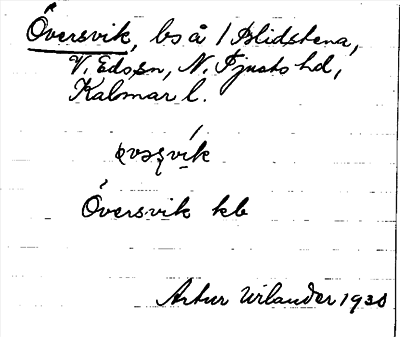 Översvik, bs å 1 Blidstena,
V. Eds sn, N. Tjusts hd,
Kalmar l.
Översvik kb
Artur Wilander 1930